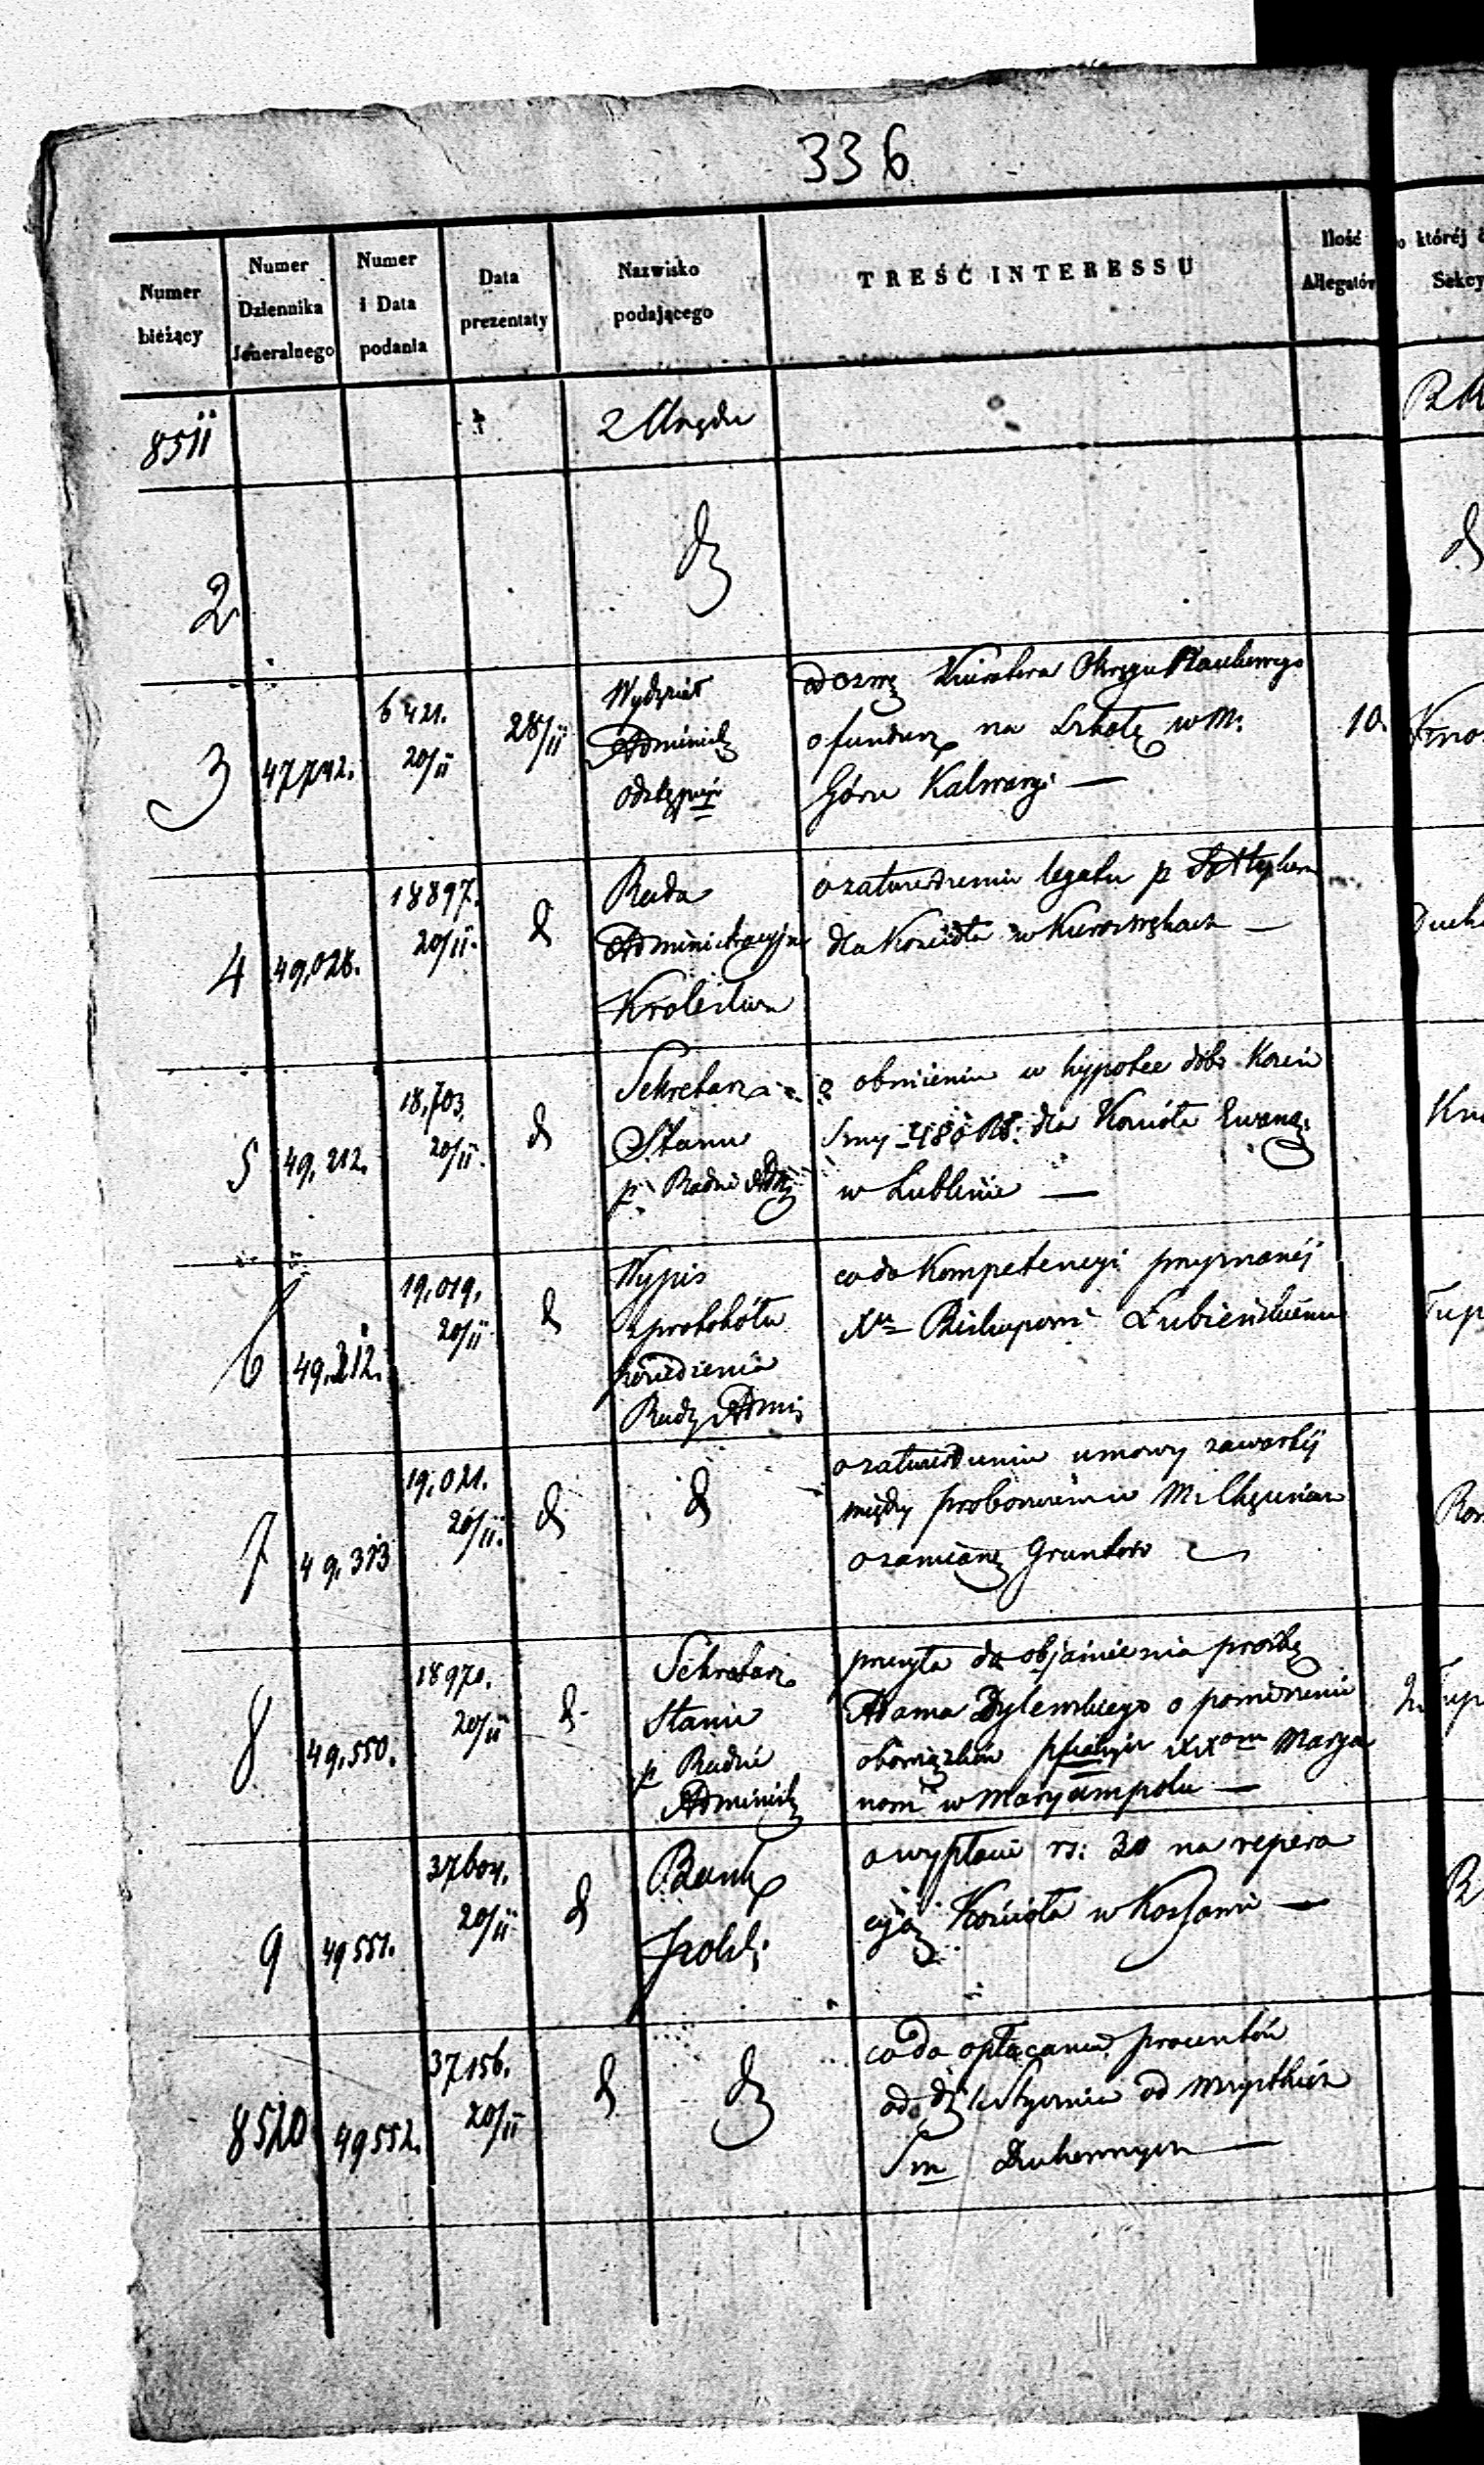 336
Numer bieżący
Numer Dziennika Jeneralnego
Numer i Data podania
Data prezentaty
Nazwisko podającego
TREŚĆ INTERESSU
Ilość Allegatów
o któréj
Sekcy
8511
z Urzędu
2
dº
3
47,742.
6421.
20/11
28/11
Wydział
Administ
odezwę Kuratora Okręgu Naukowego
o fundusz na Szkołę w M.
Górze Kalwaryi —
10.
4
49,028.
18897.
20/11.
d
Rada
Administracyjna
Królestwa
o zatwierdzeniu legatu p
dla Kościoła w Kurozwękach —
Ducho
5
49,212.
18,703.
20/11.
d
Sekretarz
Stanu
p. Radzie Adm
o obniżeniu w hypotece dóbr
Smy 480 Rs. dla Kościoła Ewang.
w Lublinie —
6
49,312.
19,019.
20/11
d
Wypis
z protokółu
posiedzenia
Rady Admi
co do Kompetencyi przyznanéj
Xu Biskupowi Łubieńskiemu
7
49,313
19,021.
20/11.
d
d
o zatwierdzeniu umowy zawartéj
między proboszczem w M.
o zamianę Gruntów
8
49,550.
18970.
20/11
d
Sekretarz
Stanu
p Radzie
Administ
przesyła do objaśnienia prośbę
Adama Dylewskiego o
obowiązków XXom Marya
nom w Maryampolu —
9
49551.
37604.
20/11
d
Bank
Polski
o wypłacie rs: 30 na repera
cyją Kościoła w —
8520
49552.
37156.
20/11
d
dº
co do opłacania procentów
od Stycznia od wszystkich
Sm Duchownych —